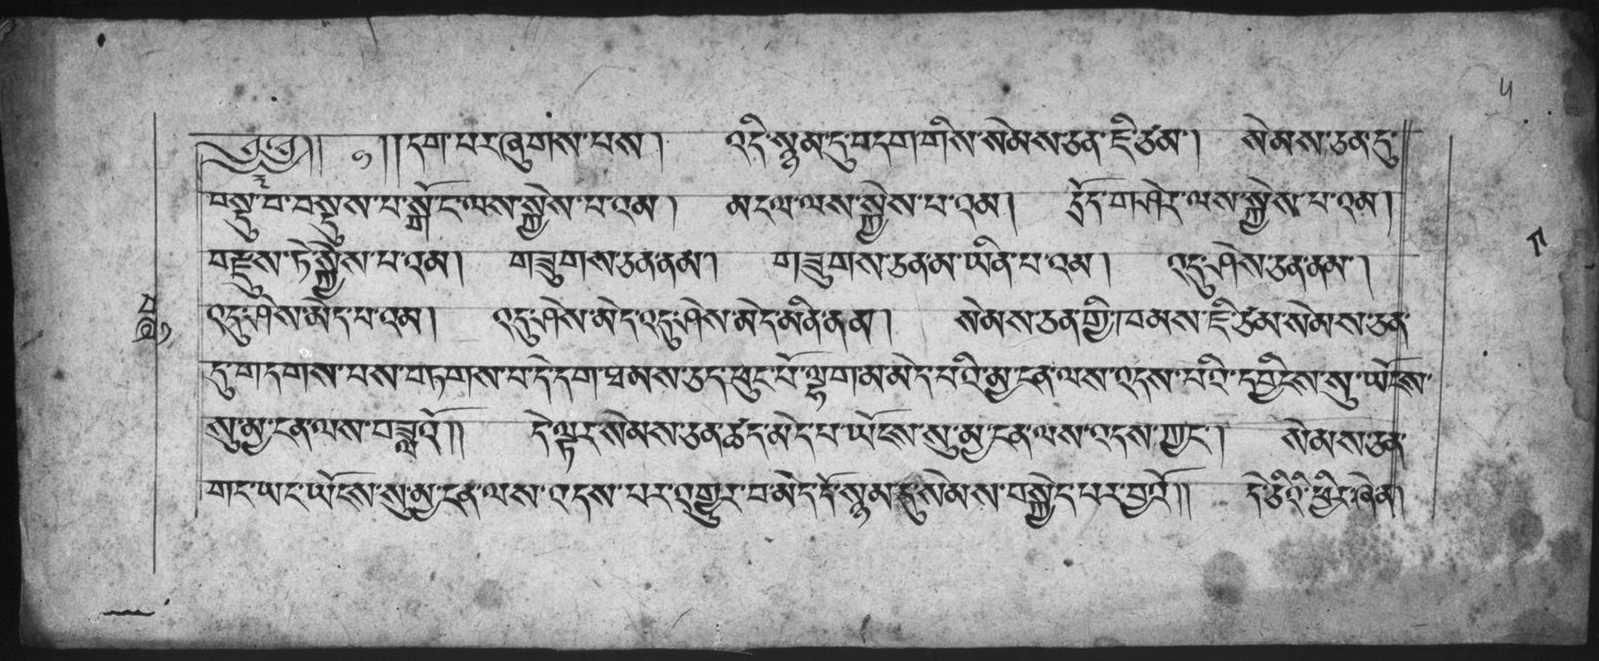 ༄༅།། ༡ །།དག་པར་ཞུགས་པས། འདི་སྙམ་དུ་བདག་གིས་སེམས་ཅན་ཇི་ཙམ། སེམས་ཅན་དུ་
བསྡུ་བ་བསྡུས་པ་སྒོ་ང་ལས་སྐྱེས་པ་འམ། མངལ་ལས་སྐྱེས་པ་འམ། དྲོད་གཤེར་ལས་སྐྱེས་པ་འམ།
བརྫུས་ཏེ་སྐྱེས་པ་འམ། གཟུགས་ཅན་ནམ། གཟུགས་ཅན་མ་ཡིན་པ་འམ། འདུ་ཤེས་ཅན་ནམ།
འདུ་ཤེས་མེད་པ་འམ། འདུ་ཤེས་མེད་འདུ་ཤེས་མེད་མིན་ནམ། སེམས་ཅན་གྱི་ཁམས་ཇི་ཙམ་སེམས་ཅན་
དུ་གདགས་པས་བཏགས་པ་དེ་དག་ཐམས་ཅད་ཕུང་པོ་ལྷག་མ་མེད་པའི་མྱ་ངན་ལས་འདས་པའི་དབྱིངས་སུ་ཡོངས་
སུ་མྱ་ངན་ལས་བཟླའོ།། དེ་ལྟར་སེམས་ཅན་ཚད་མེད་པ་ཡོངས་སུ་མྱ་ངན་ལས་འདས་ཀྱང་། སེམས་ཅན་
གང་ཡང་ཡོངས་སུ་མྱ་ངན་ལས་འདས་པར་འགྱུར་བ་མེད་དོ་སྙམ་དུ་སེམས་བསྐྱེད་པར་བྱའོ།། དེ་ཅིའི་ཕྱིར་ཞེ་ན།
༥